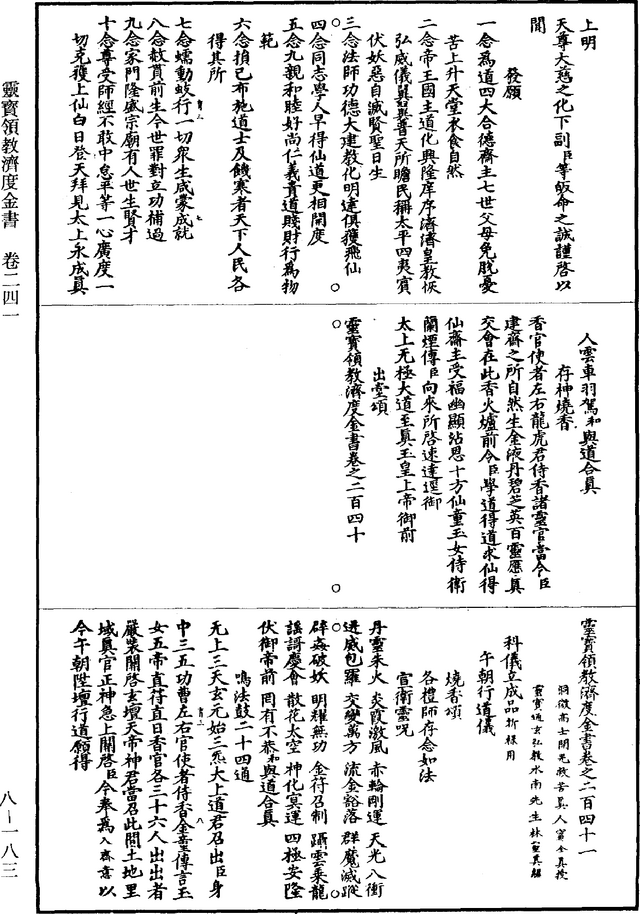 上明
天尊大慈之化下副臣等皈命之誠謹啓以
聞
發願
一念為道四大合德齋主七世父母免脫憂
苦上升天堂衣食自然
二念帝王國主道化興隆庠序濟濟皇教恢
弘威儀翼翼普天所瞻民稱太平四夷賓
伏妖惡自滅賢聖日生
三念法師功德大建教化明達俱獲飛仙
四念同志學人早得仙道更相開度
五念九親和睦好尚仁義貴道賤財行為物
範
六念損己布施道士及饑寒者天下人民各
得其所
七念蠕動蚑行一切衆生咸蒙成就
八念敕貰前生今世罪對立功補過
九念家門隆盛宗廟有人世生賢才
十念尊受師經不敢中怠平等一心廣度一
切克獲上仙白日登天拜見太上永成眞
人雲車羽駕和與道合眞
存神燒香
香官使者左右龍虎君侍香諸靈官當令臣
建齋之所自然生金液丹碧芝英百靈應眞
交會在此香火爐前令臣學道得道求仙得
仙齋主受福幽顯沾恩十方仙童玉女侍衛
蘭煙傳臣向來所啓速達逕御
太上无極大道至眞玉皇上帝御前
出堂頌
靈寶領教濟度金書卷之二百四十
靈寶領教濟度金書卷之二百四十一
洞微高士開光救苦眞人甯全真授
靈寶通玄弘教水南先生林靈真編
科儀立成品祈禳用
午朝行道儀
燒香頌
各禮師存念如法
宣衛靈呪
丹靈朱火 炎霞激風 赤輪剛運 天光八衝
迅威包羅 交變萬方 流金豁落 群魔滅蹤
辟姦破妖 明耀無功 金符召制 躡雲乘龍
謡謌慶會 散花太空 神化冥運 四極安隆
伏御帝前 罔有不恭和與道合眞
鳴法鼓二十四通
无上三天玄元始三炁太上道君召出臣身
中三五功曹左右官使者侍香金童傳言玉
女五帝直符直日香官各三十六人出出者
嚴裝關啓玄壇天帝神君當召此間土地里
域眞官正神急上關啓臣今奉為入齋意以
今午朝陞壇行道願得
靈寶領教濟度金書 卷二四一
八-一八三